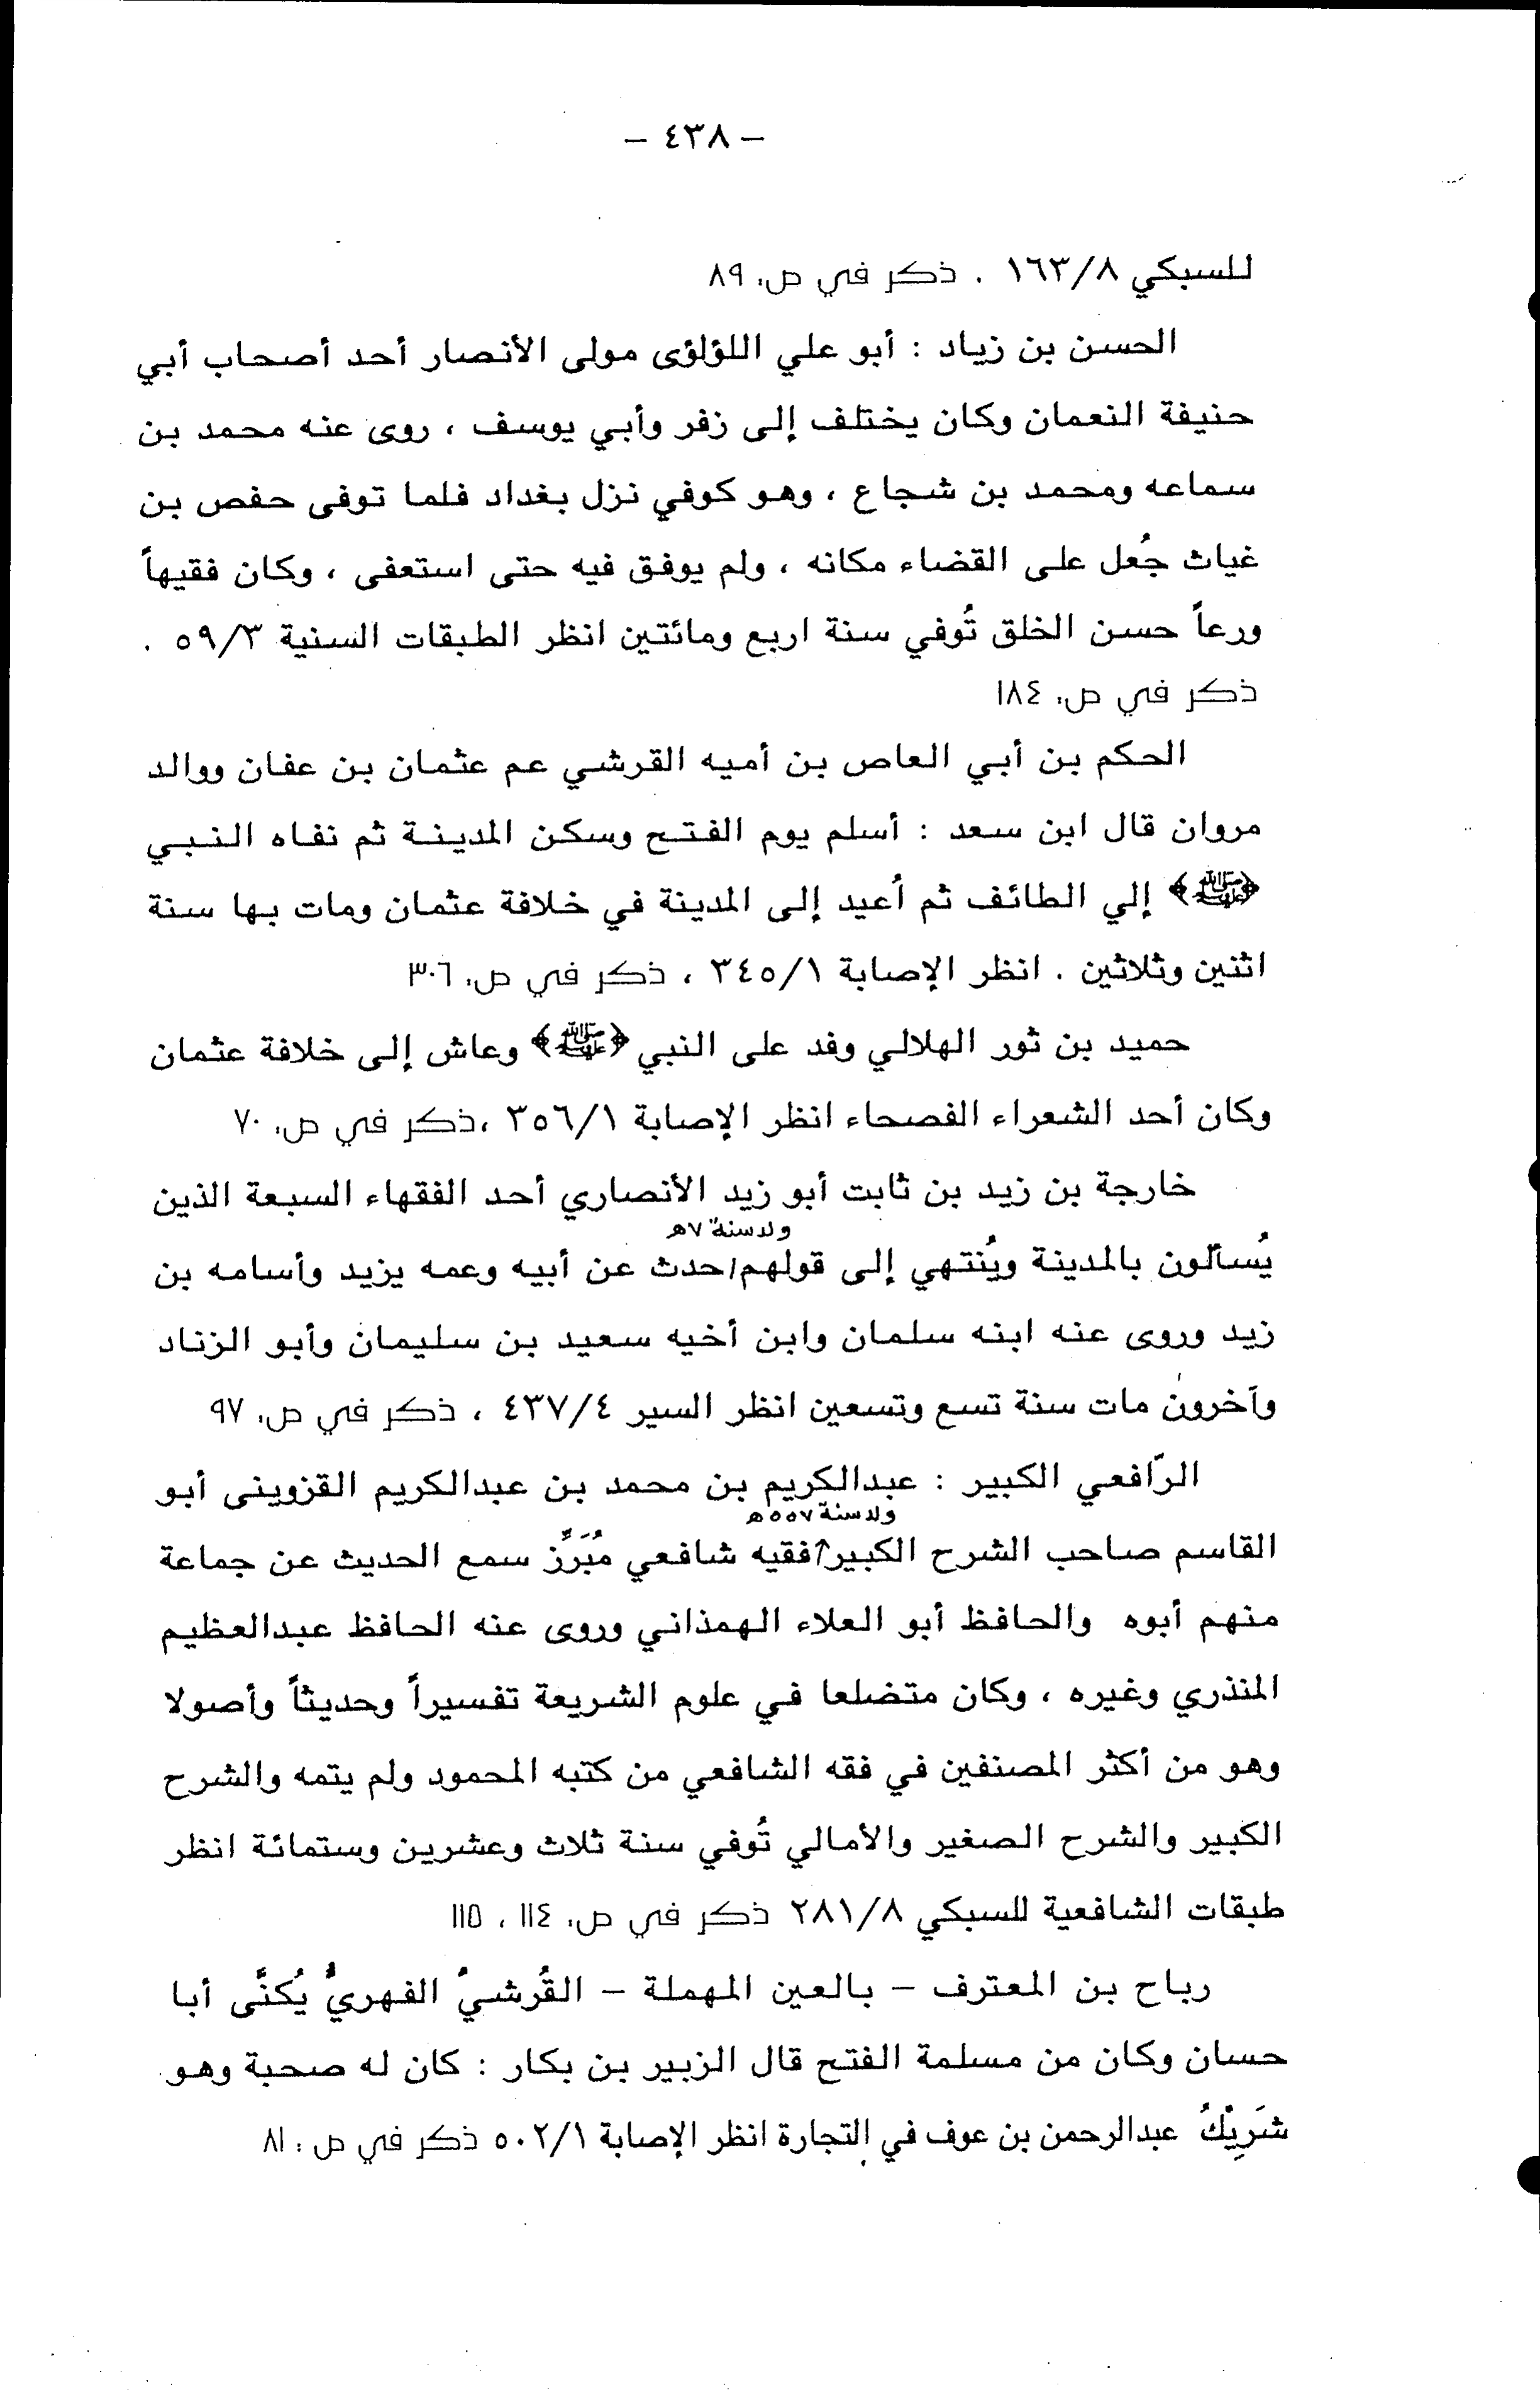 – ٤٣٨ –
للسبكي ١٦٣/٨ . ذكر في ص. ٨٩
الحسن بن زياد : أبو علي اللؤلؤى مولى الأنصار أحد أصحاب أبي
حنيفة النعمان وكان يختلف إلى زفر وأبي يوسف ، روى عنه محمد بن
سماعه ومحمد بن شجاع ، وهو كوفي نزل بغداد فلما توفى حفص بن
غياث جُعل على القضاء مكانه ، ولم يوفق فيه حتى استعفى ، وكان فقيهاً
ورعاً حسن الخلق تُوفي سنة اربع ومائتين انظر الطبقات السنية ٥٩/٣ .
ذكر في ص. ١٨٤
الحكم بن أبي العاص بن أميه القرشي عم عثمان بن عفان ووالد
مروان قال ابن سعد : أسلم يوم الفتح وسكن المدينة ثم نفاه النبي
﴿ﷺ﴾ إلي الطائف ثم أعيد إلى المدينة في خلافة عثمان ومات بها سنة
اثنين وثلاثين . انظر الإصابة ٣٤٥/١ ، ذكر في ص. ٣٠٦
حميد بن ثور الهلالي وفد على النبي ﴿ﷺ﴾ وعاش إلى خلافة عثمان
وكان أحد الشعراء الفصحاء انظر الإصابة ٣٥٦/١ ،ذكر في ص. ٧٠
خارجة بن زيد بن ثابت أبو زيد الأنصاري أحد الفقهاء السبعة الذين
ولد سنة ٧ه
يُسألون بالمدينة ويُنتهي إلى قولهم/حدث عن أبيه وعمه يزيد وأسامه بن
زيد وروى عنه ابنه سلمان وابن أخيه سعيد بن سليمان وأبو الزناد
وآخرون مات سنة تسع وتسعين انظر السير ٤٣٧/٤ ، ذكر في ص. ٩٧
الرّافعي الكبير : عبدالكريم بن محمد بن عبدالكريم القزوينى أبو
ولد سنة ٥٥٧ه
القاسم صاحب الشرح الكبير/فقيه شافعي مُبَرِّز سمع الحديث عن جماعة
منهم أبوه والحافظ أبو العلاء الهمذاني وروى عنه الحافظ عبدالعظيم
المنذري وغيره ، وكان متضلعا في علوم الشريعة تفسيراً وحديثاً وأصولا
وهو من أكثر المصنفين في فقه الشافعي من كتبه المحمود ولم يتمه والشرح
الكبير والشرح الصغير والأمالي تُوفي سنة ثلاث وعشرين وستمائة انظر
طبقات الشافعية للسبكي ٢٨١/٨ ذكر في ص. ١١٤ ، ١١٥
رباح بن المعترف – بالعين المهملة – القُرشيُ الفهريُّ يُكنَّى أبا
حسان وكان من مسلمة الفتح قال الزبير بن بكار : كان له صحبة وهو
شَرِيْكُ عبدالرحمن بن عوف في التجارة انظر الإصابة ٥٠٢/١ ذكر في ص : ٨١